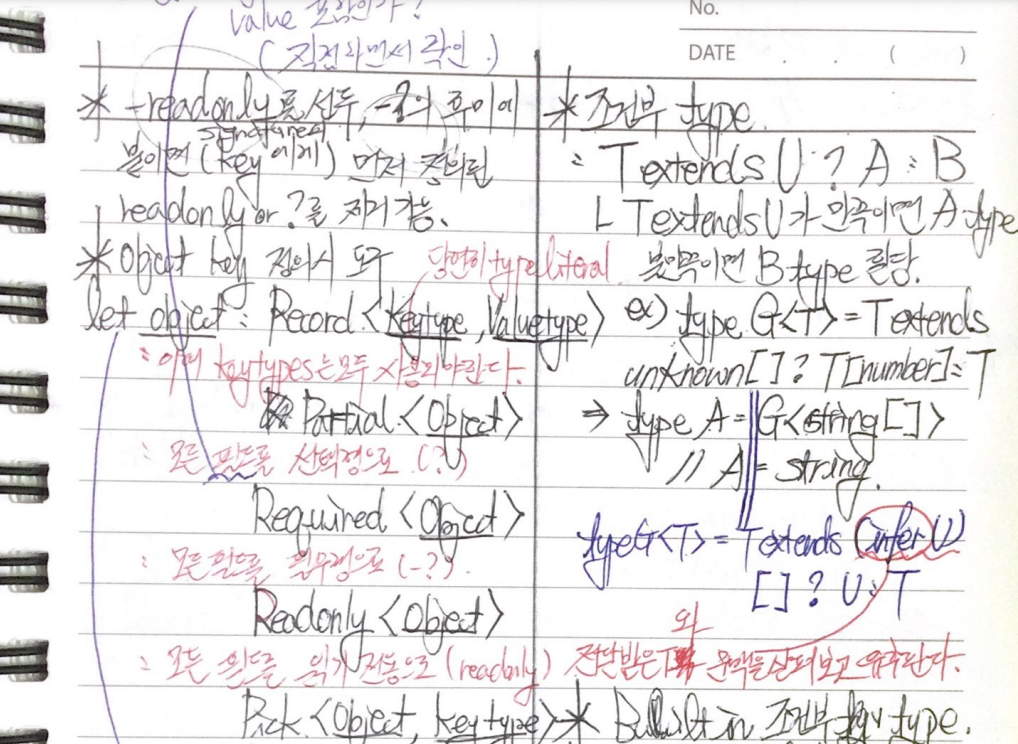 value 포함인가?
(직접하면서 확인.)
No.
DATE . . ( )
* -readonly를 선두, -?의 후미에
signature
붙이면(key에게) 먼저 정의된
readonly or ?를 제거 가능.
* Object key 정의시 도구
let object : Record <Keytype, Valuetype>
당연히 type literal
: 이때 keytypes는 모두 사용되야한다.
Partial <Object>
: 모든 필드를 선택형으로 (?)
Required <Object>
: 모든 필드를 의무형으로 (-?).
Readonly <Object>
: 모든 필드를 읽기 전용으로 (readonly)
Pick <Object, keytype>
* 조건부 type.
: T extends U ? A : B
ㄴ T extends U가 만족이면 A type
불만족이면 B type 할당.
ex) type G<T> = T extends
unknown[] ? T[number] : T
⇒ type A = G<string[]>
// A = string.
type G<T> = T extends (infer U)
[] ? U : T
와
전달받은 T 문맥을 살펴보고 유추한다.
* Built in 조건부 type.